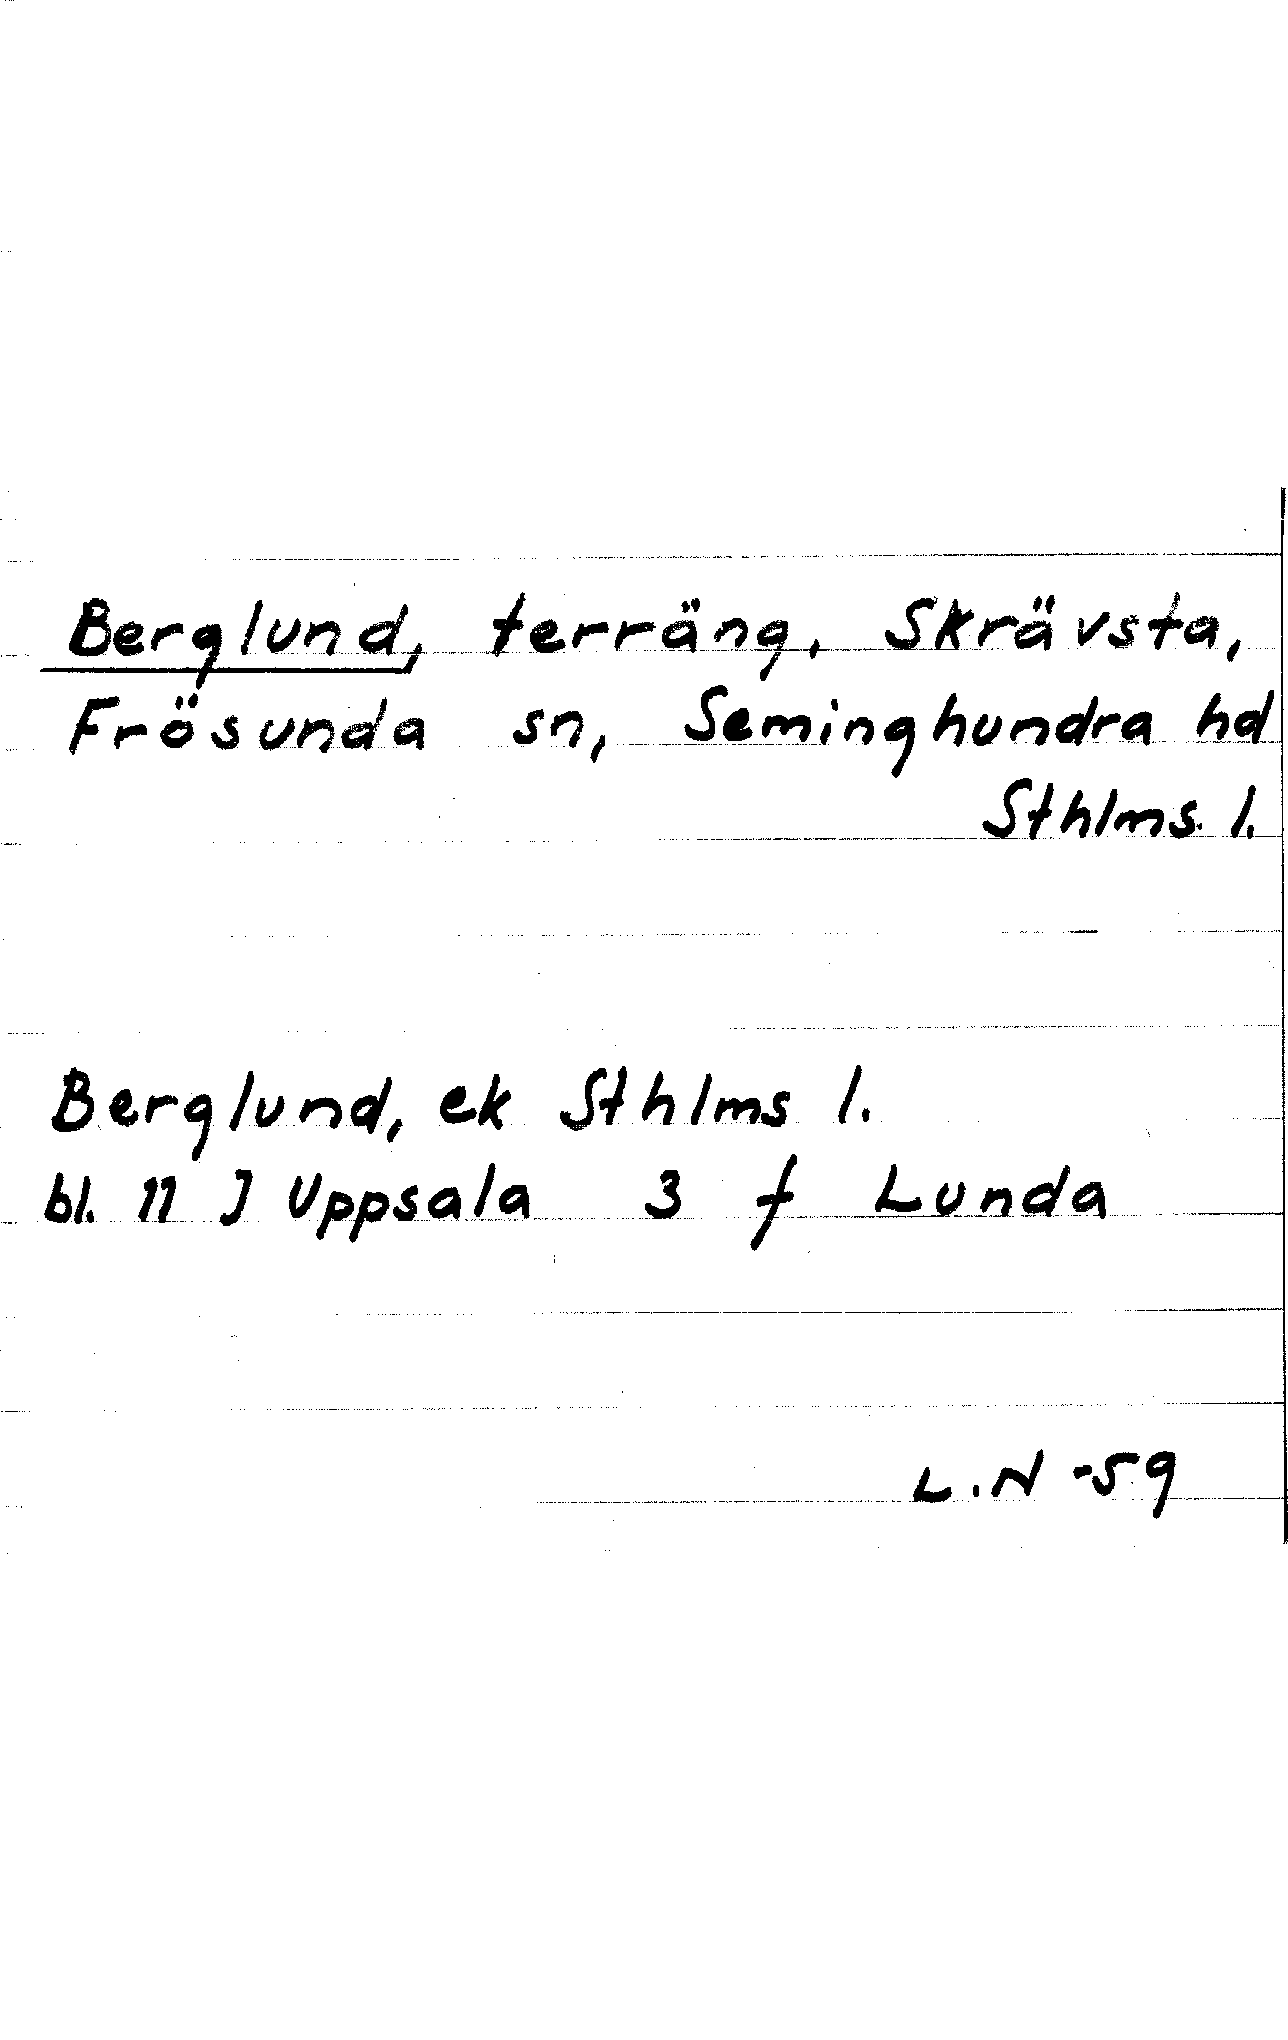 Berglund, terräng, Skrävsta,
Frösunda sn, Seminghundra hd
Sthlms. l.
Berglund, ek Sthlms l.
bl. 11 J Uppsala 3 f Lunda
L.N -59